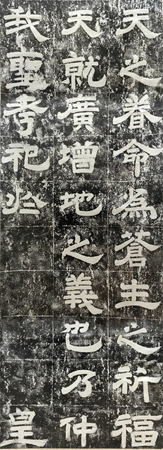 天之眷命為蒼生之祈福
天就廣增地之義也乃仲
我聖孝祀㳟皇